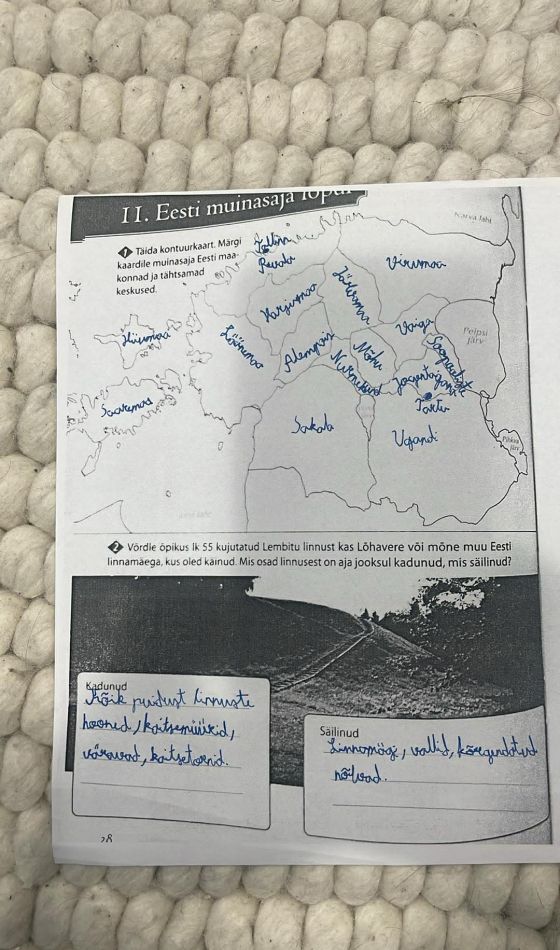 II. Eesti muinasaja lõpul
1 Täida kontuurkaart. Märgi
kaardile muinasaja Eesti maa-
konnad ja tähtsamad
keskused.
Narva laht
Tallinn
Revala
Virumaa
Järvamaa
Harjumaa
Hiiumaa
Läänemaa
Vaiga
Peipsi
järv
Alempois
Mõhu
Nurmekund
Soopoolitse
Jogentagana
Saaremaa
Tartu
Sakala
Ugandi
Pihkva
järv
Liivi laht
2 Võrdle õpikus lk 55 kujutatud Lembitu linnust kas Lõhavere või mõne muu Eesti
linnamäega, kus oled käinud. Mis osad linnusest on aja jooksul kadunud, mis säilinud?
Kadunud
Kõik puidust linnuste
hooned, kaitsemüürid,
väravad, kaitsetornid.
Säilinud
Linnamägi, vallid, kõrgendatud
nõlvad.
28